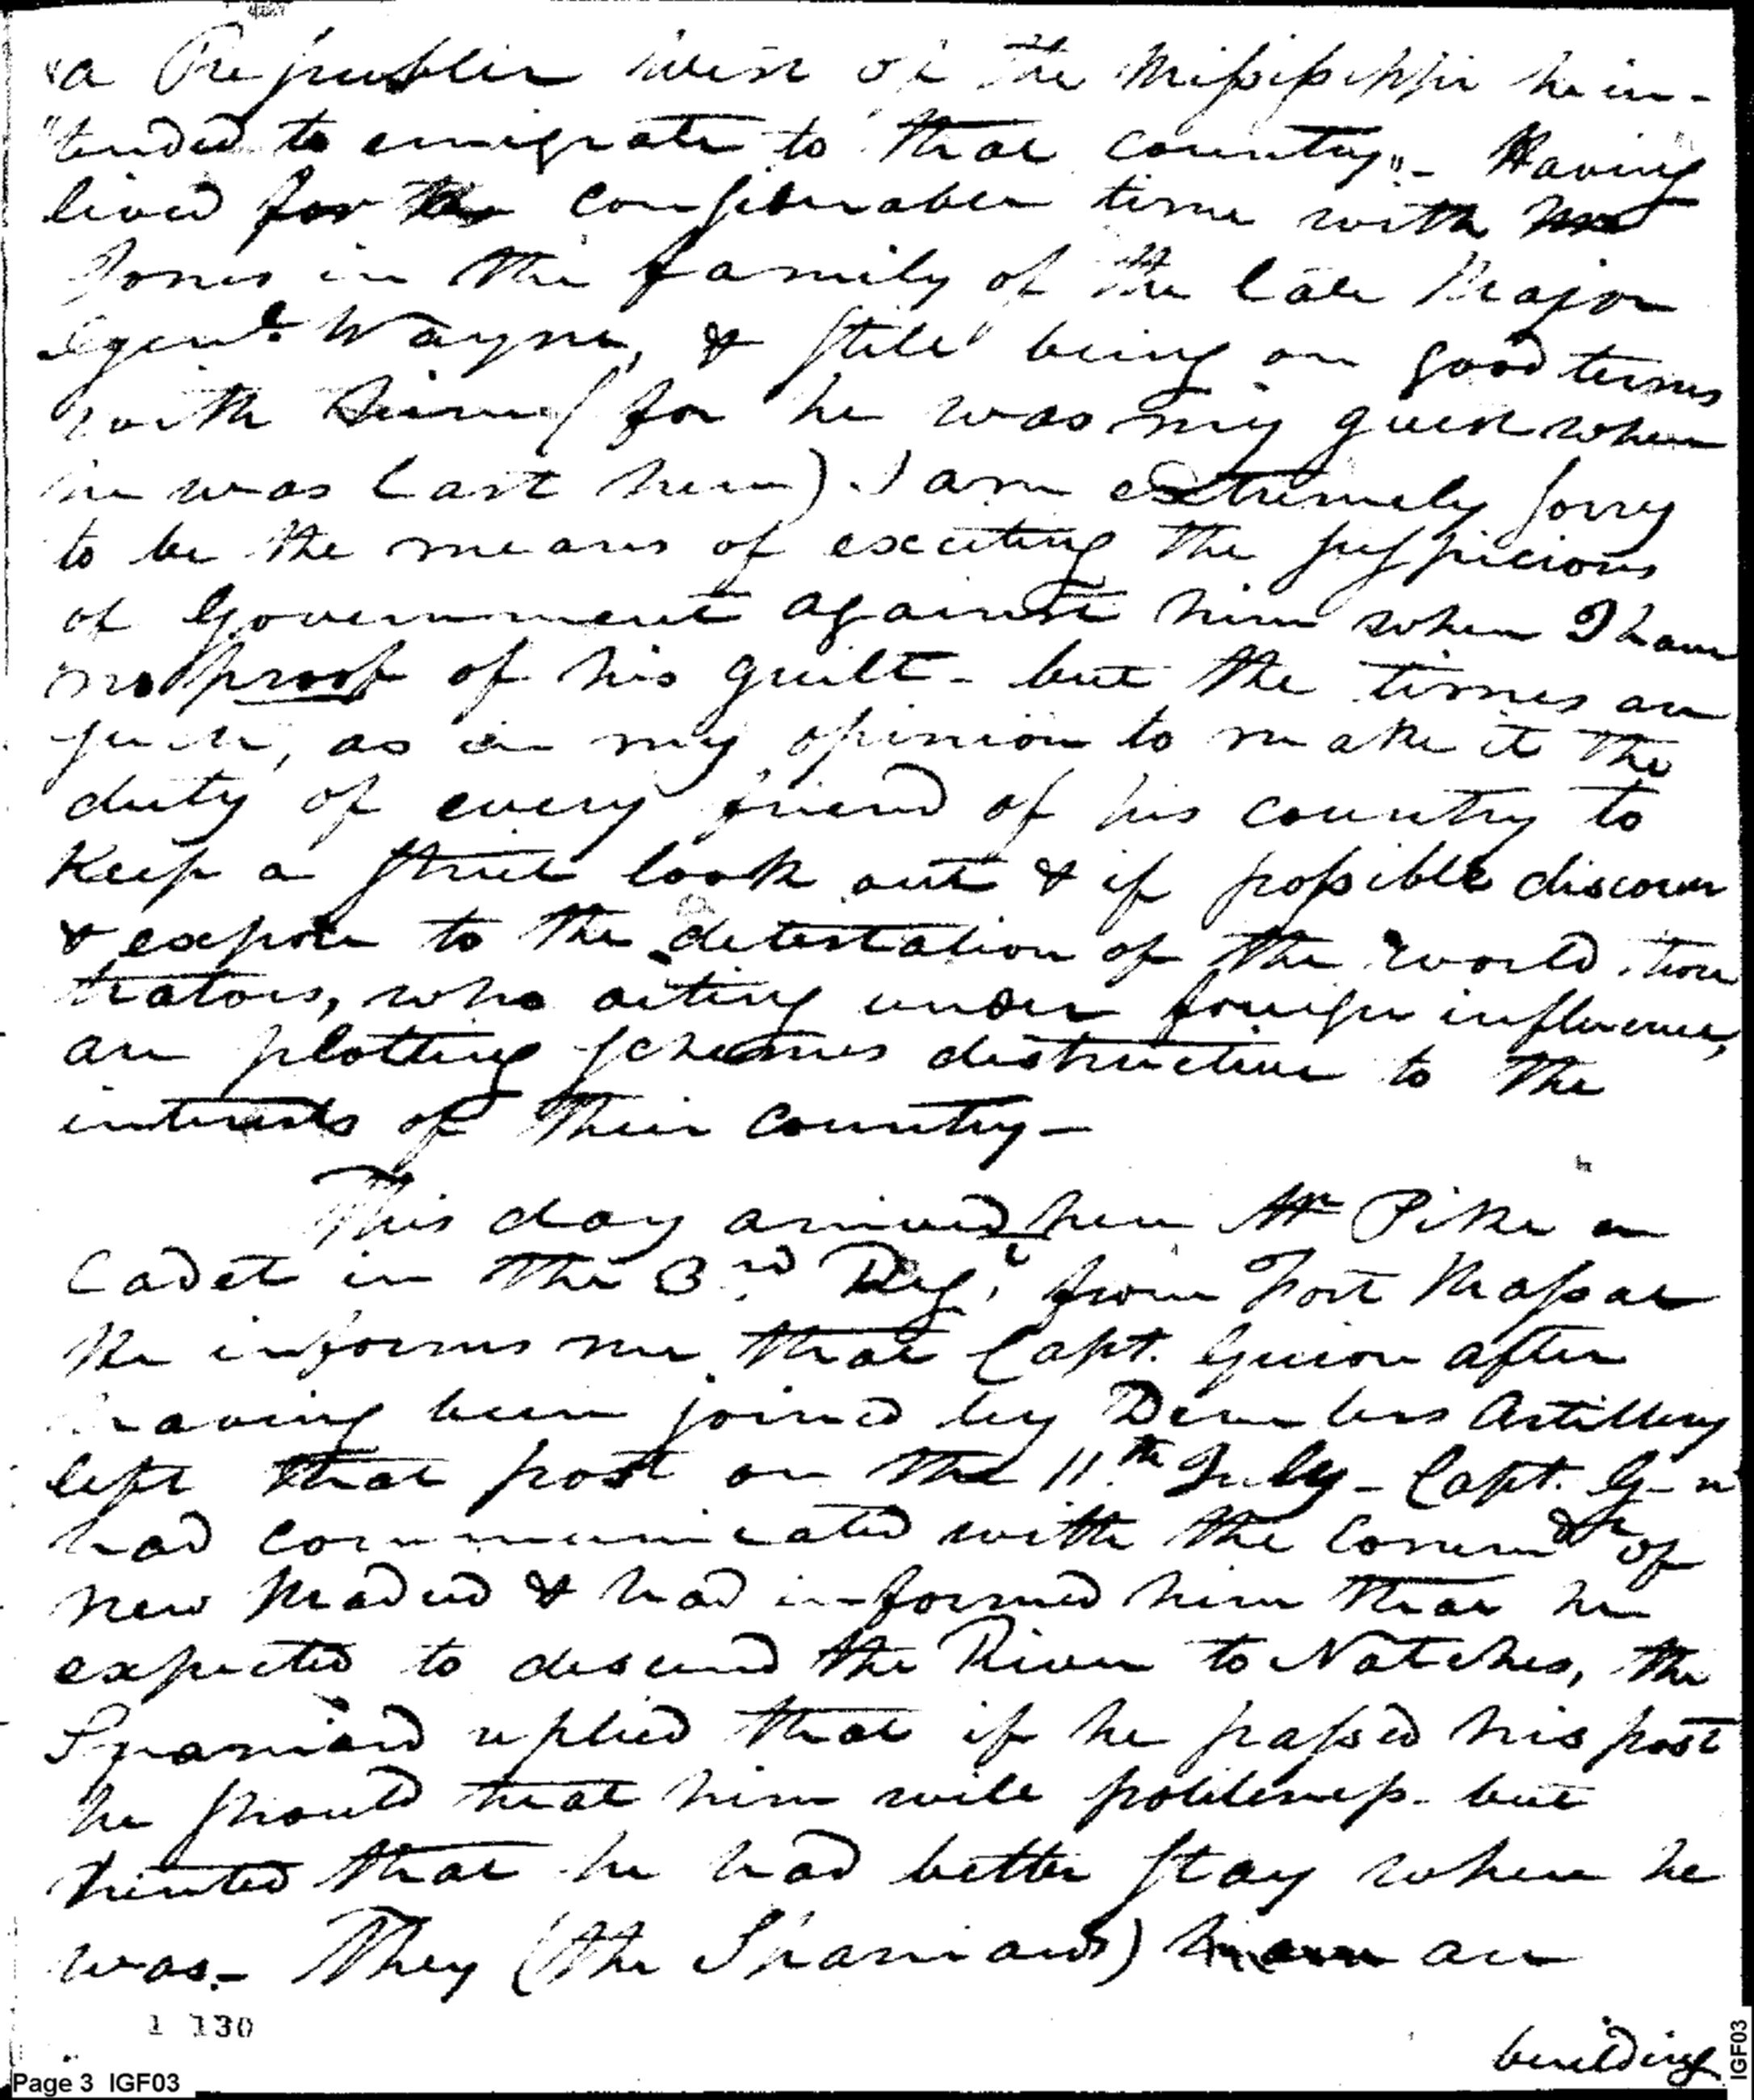 "a Republic west of the Missisippi he in-
"tended to emigrate to that country" - Having
lived for considerable time with Mr
Jones in the family of the late Major
Genl. Wayne, & still being on good terms
with him (for he was my guest when
he was last here) I am extremely sorry
to be the means of exciting the suspicions
of Government against him when I have
no proof of his guilt - but the times are
such, as in my opinion to make it the
duty of every friend of his country to
keep a strict look out & if possible discover
& expose to the detestation of the world those
traitors, who acting under foreign influence,
are plotting schemes destructive to the
interests of their country -
This day arrived here Mr Pike a
Cadet in the 3rd Regt from Fort Massac
He informs me that Capt. Guion after
having been joined by Demlers Artillery
left that post on the 11th July - Capt. G-n
had communicated with the Commdt of
New Madrid & had informed him that he
expected to descend the River to Natches, the
Spaniard replied that if he passed his post
he should treat him with politeness - but
hinted that he had better stay where he
was - They (the Spaniards) are
building
1 130
Page 3 IGF03
IGF03